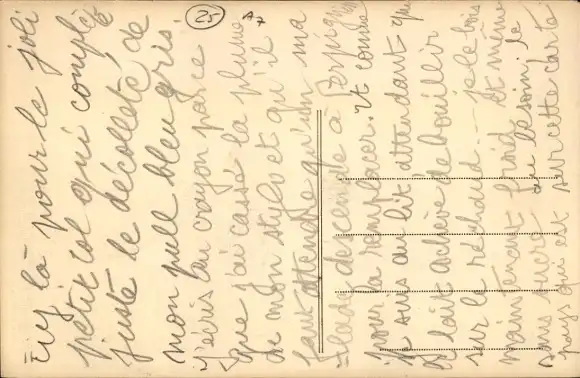 25
là pour le joli
petit col qui complète
juste le décolleté de
mon pull bleu gris.
J'écris au crayon parce
que j'ai cassé la plume
de mon stylo et qu'il
faut attendre qu'un ma
descende à
pour la remplacer. et comme
je suis au lit attendant que
le lait achève de bouillir
sur le réchaud. — je le bois
maintenant froid et même
sans sucre au besoin, le
pays qui est sur cette carte est